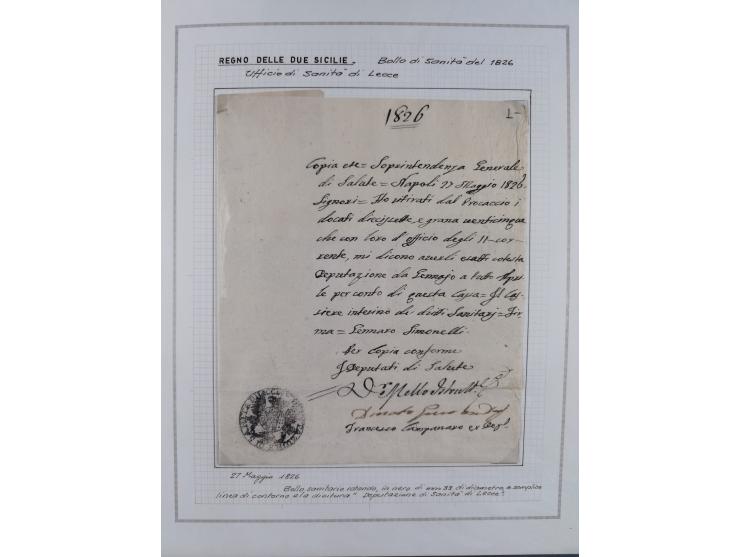 REGNO DELLE DUE SICILIE. Bollo di Sanita' del 1826
Ufficio di Sanita' di Lecce
1826
Copia = Soprintendenza Generale
di Salute = Napoli 27 Maggio 1826
Signori = Ho ritirati dal Procaccio i
docati diecisette, e grana venticinque
che con loro d'officio degli 11 cor-
rente, mi dicono averli esatti cotesta
Deputazione da Gennajo a tutto Apri-
le per conto di questa Cassa = Il Cas-
siere interino de' diritti Sanitarj = Fir-
ma = Gennaro Simonelli.
Per Copia conforme
I Deputati di Salute
Francesco Campanaro
27 Maggio 1826
Bollo sanitario rotondo, in nero di mm 33 di diametro, a semplice
linea di contorno e la dicitura "Deputazione di Sanita' di Lecce".